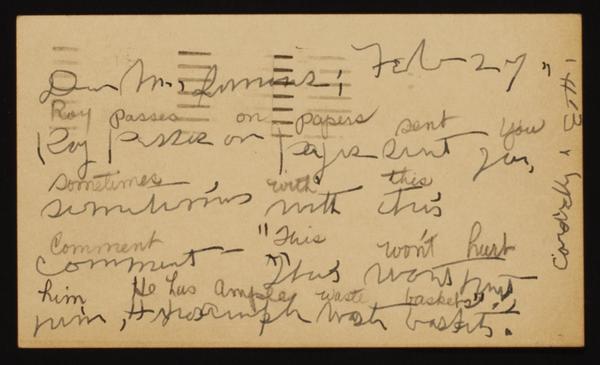 Feb 27"
Dear Mrs
Roy passes on papers sent you
Roy passes on papers sent you,
sometimes with this
sometimes with this
Comment "This won't hurt
comment "This wont hurt
him He has Ample waste baskets",
him, He has ample waste baskets.